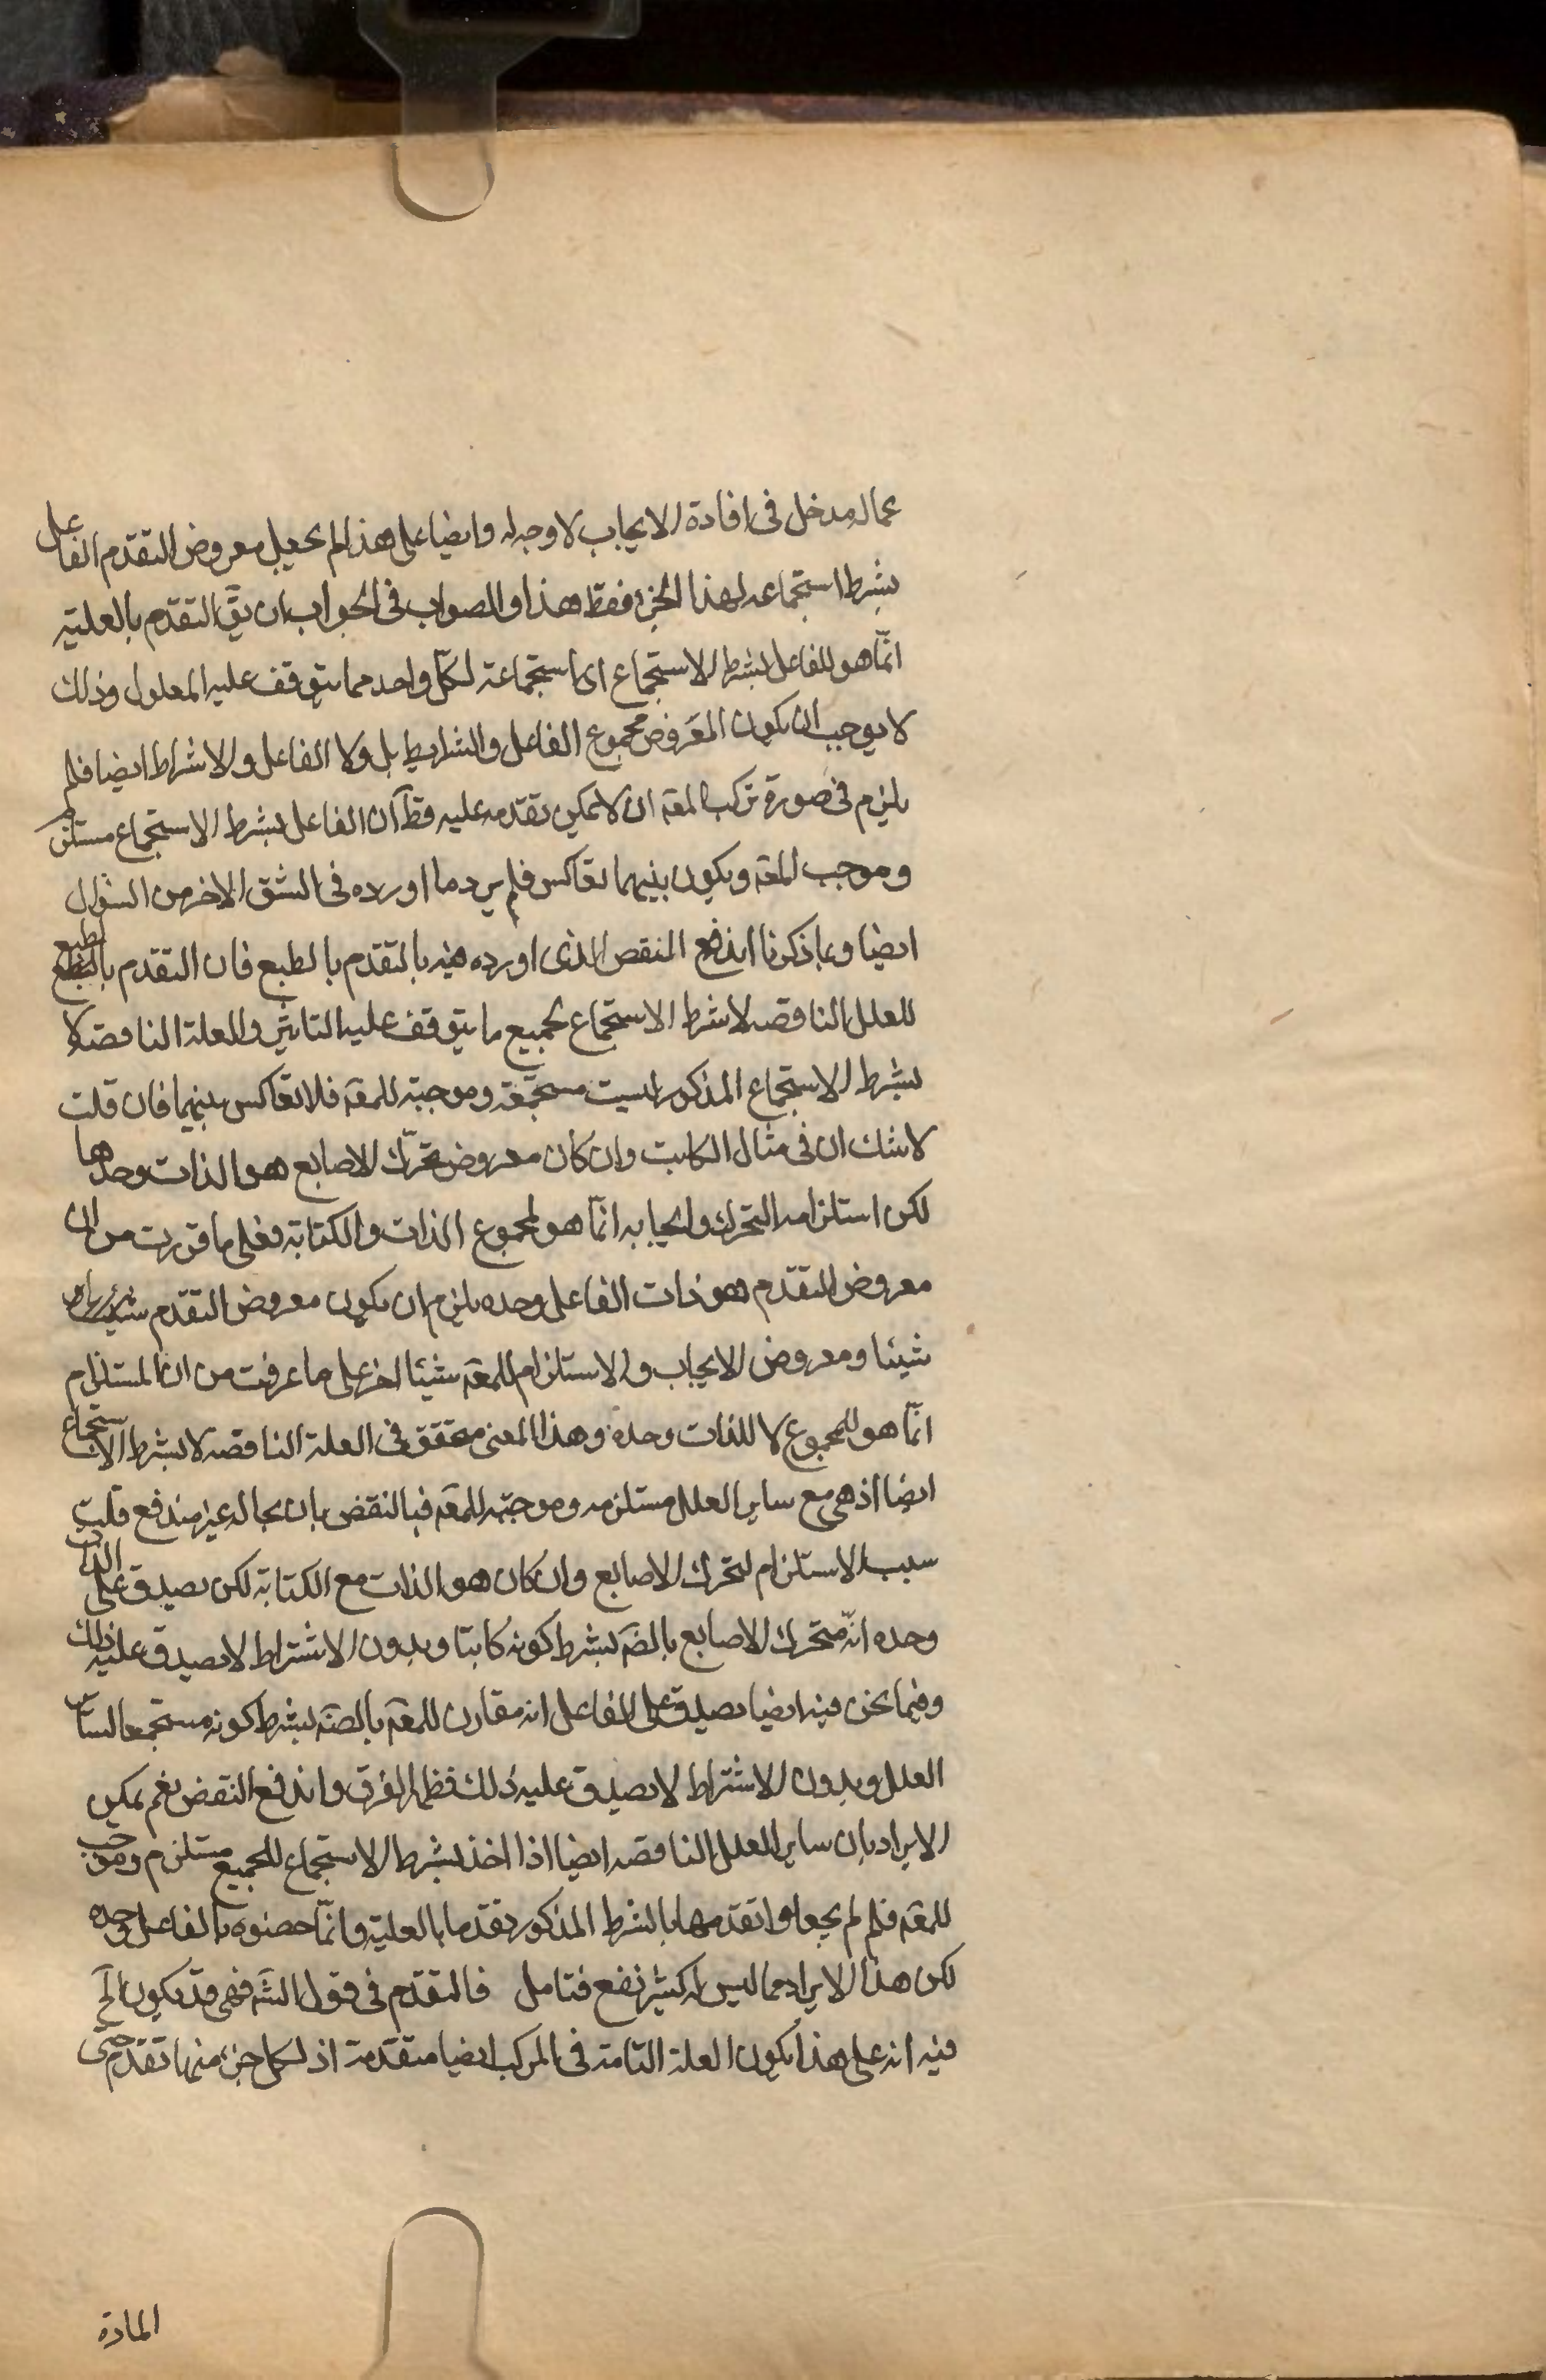 عماله مدخل فى افادة الايجاب لا وجه له وايضا على هذا لم يجعل معروض التقدم الفاعل
بشرط استجماعه لهذا الجزء فقط هذا والصواب فى الجواب ان يق التقدم بالعلية
انّما هو للفاعل بشرط الاستجماع اى استجماعة لكلّ واحد مما يتوقف عليه المعلول وذلك
لا يوجب ان يكون المعروض مجموع الفاعل والشرايط بل ولا الفاعل والاشراط ايضا فلم
يلزم فى صورة تركب المعه ان لا يمكن تقدمه عليه قط آن الفاعل بشرط الاستجماع مستلزم
وموجب للمعه ويكون بينهما تعاكس فلم يرد ما اورده فى الشق الاخر من السؤال
ايضا وبما ذكرنا اندفع النقض الذى اورده فيه بالتقدم بالطبع فان التقدم بالطبع
للعلل الناقصه لا شرط الاستجماع لجميع ما يتوقف عليه التاثير والعلة الناقصة لا
بشرط الاستجماع المذكور ليست مستجمعة وموجبة للمعه فلا تعاكس بينهما فان قلت
لا شك ان فى مثال الكاتب وان كان معروض تحرّك الاصابع هو الذات وحدها
لكن استلزامه التحرك وايجابه انّما هو لمجموع الذات والكتابة فعلى ما قررت من ان
معروض التقدم هو ذات الفاعل وحده يلزم ان يكون معروض التقدم
شيئا ومعروض الايجاب والاستلزام للمعه شيئا اخر على ما عرفت من ان المستلزم
انّما هو المجموع لا للذات وحده وهذا المعنى متحقق فى العلة الناقصه لا بشرط الاستجماع
ايضا اذ هى مع ساير العلل مستلزمه وموجبة للمعه فبالنقض باق بحاله غير مندفع قلت
سبب الاستلزام لتحرك الاصابع وان كان هو الذات مع الكتابة لكن يصدق على الذات
وحده انّه متحرك الاصابع بالضه بشرط كونه كاتبا وبدون الاشتراط لا يصدق عليه ذلك
وفيما نحن فيه ايضا يصدق على الفاعل انه مقارن للمعه بالضه بشرط كونه مستجمعا لساير
العلل وبدون الاشتراط لا يصدق عليه ذلك فظهر الفرق واندفع النقض نعم يمكن
الايراد بان ساير العلل الناقصه ايضا اذا اخذ بشرط الاستجماع للجميع مستلزم وموجب
للمعه فلم لم يجعلوا تقدمها بالشرط المذكور تقدما بالعلية وانّما خصوه بالفاعل وحده
لكن هذا الايراد مما ليس له كثير نفع فتامل فالتقدم فى قول الشه فهى قد يكون الخ
فيه انه على هذا يكون العلة التامة فى المركب ايضا متقدمة اذ لكل جزء منها تقدم حتى
المادة